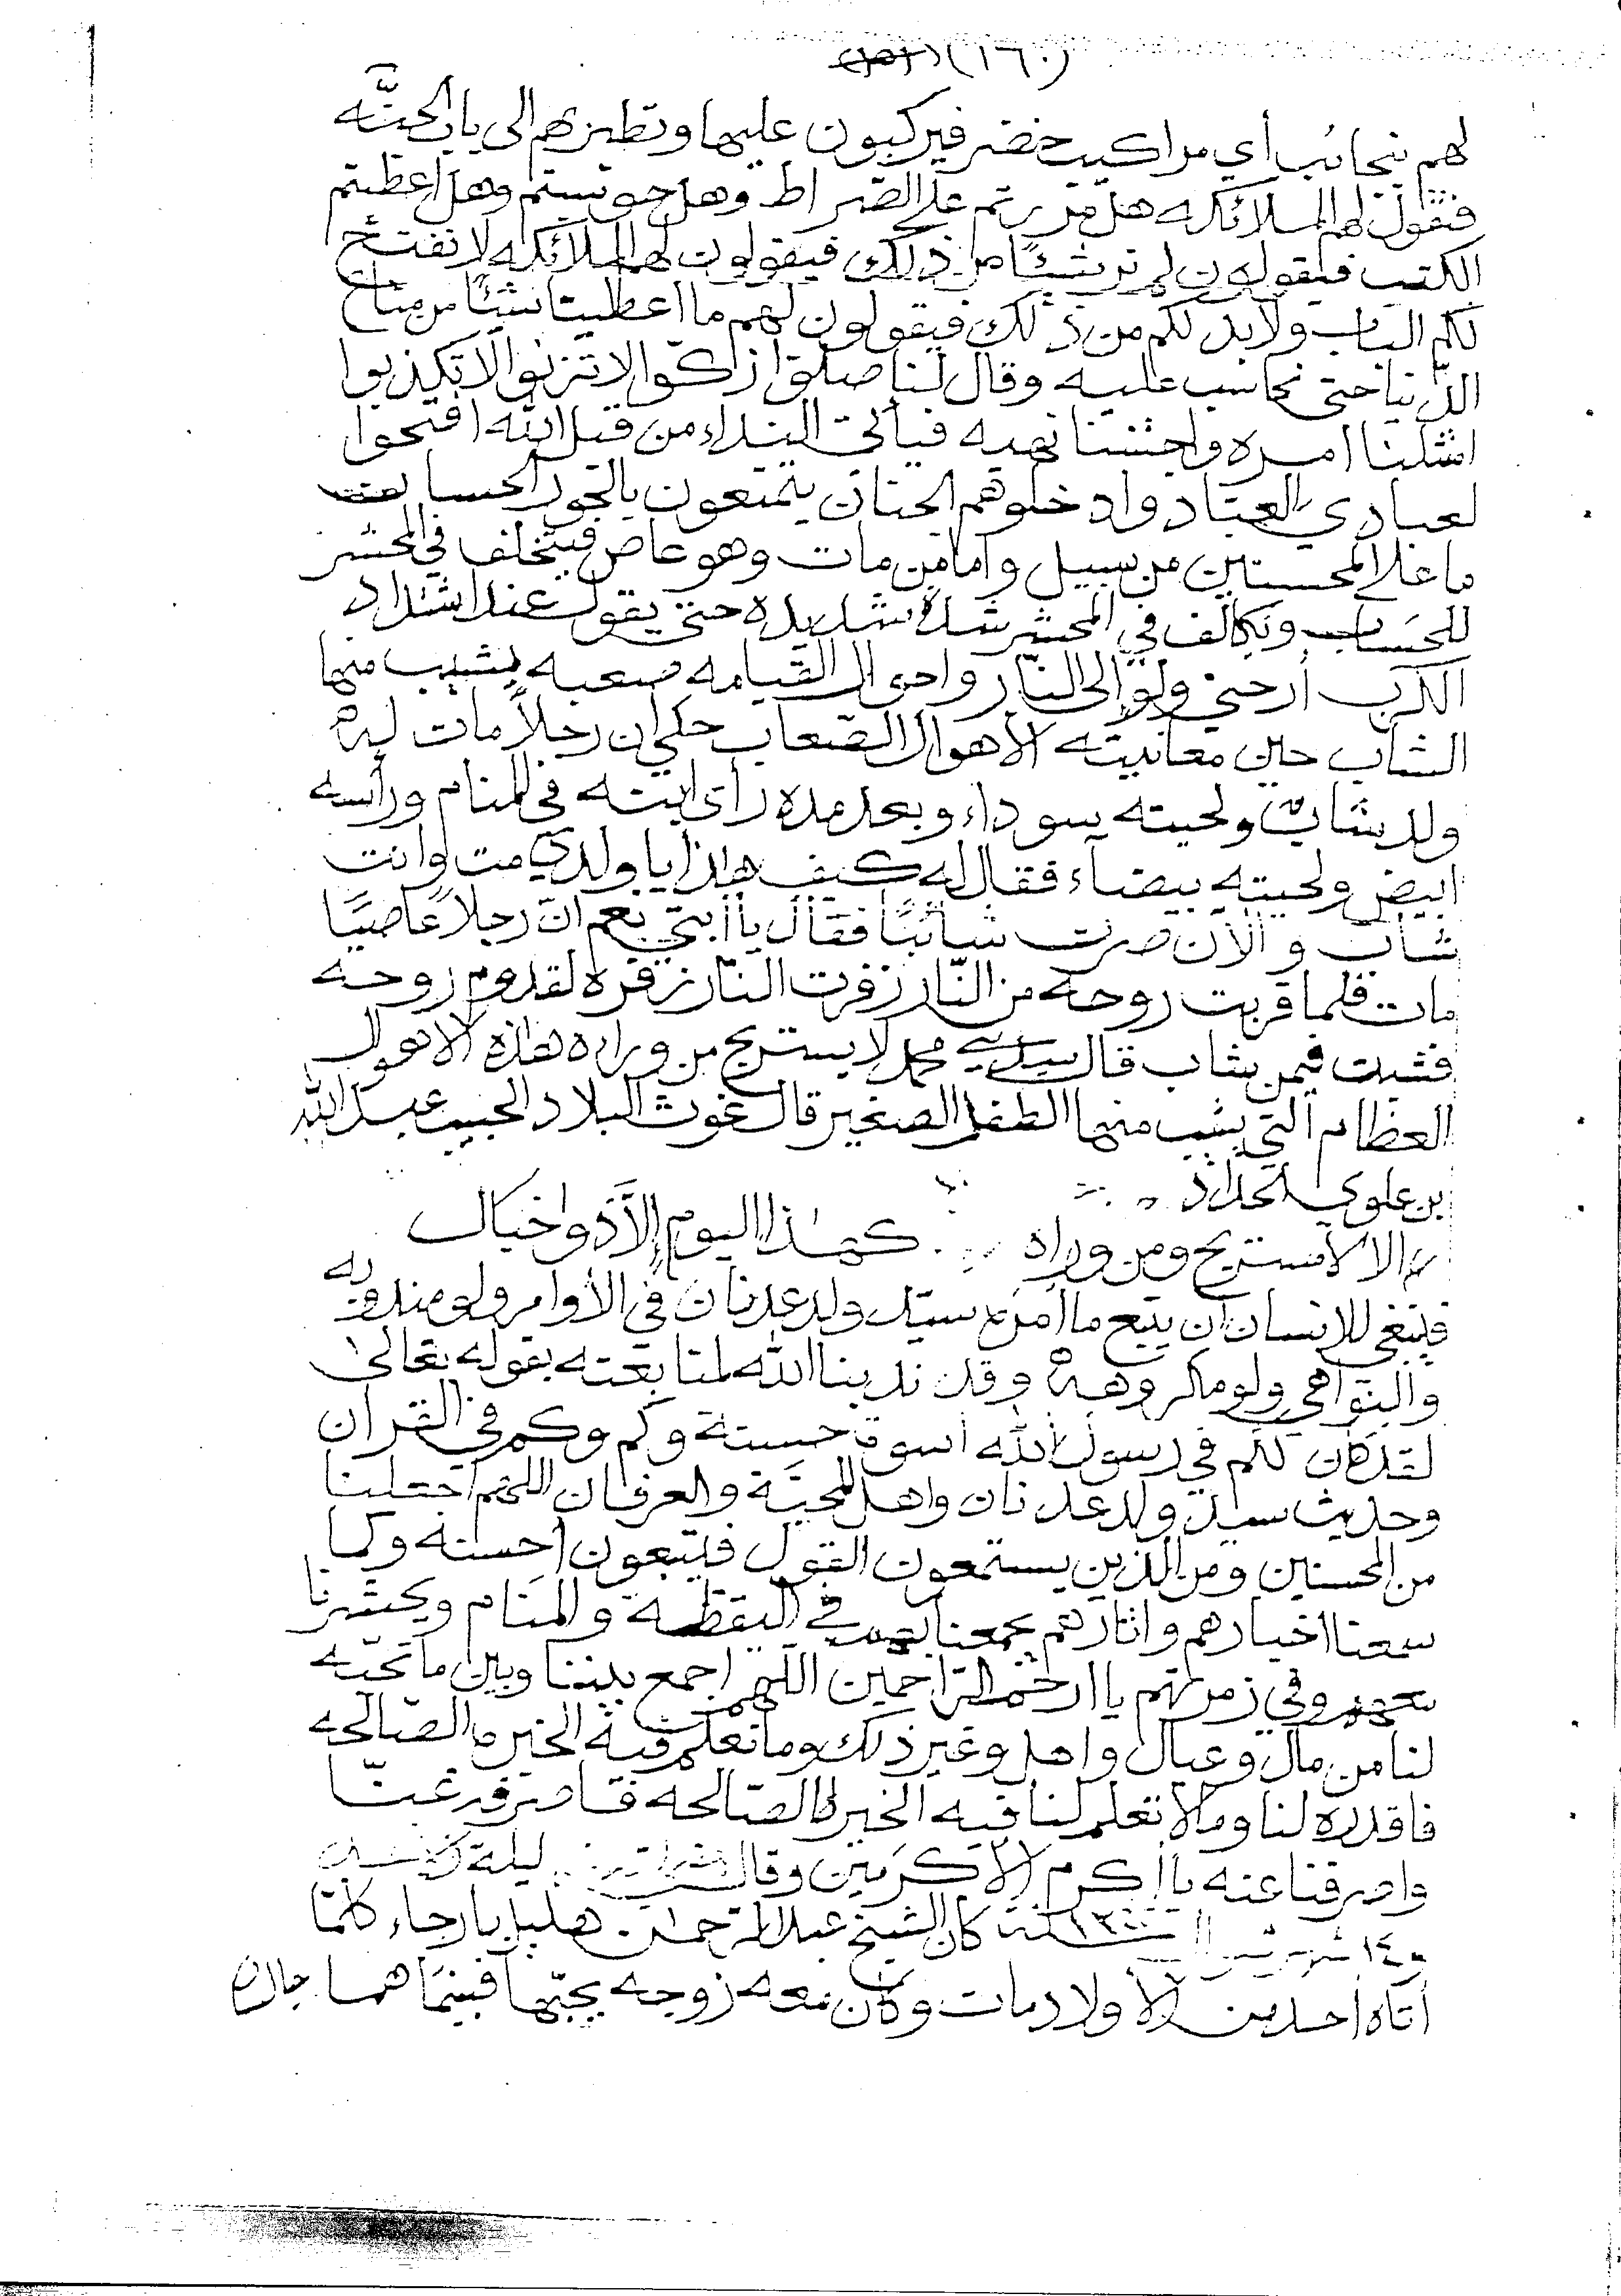 (١٦٠)
لهم نجائب أي مراكيب خضر فيركبون عليها وتطير بهم الى باب الجنّه
فتقول لهم الملائكه هل مررتم على الصراط وهل حوسبتم وهل اعطيتم
الكتب فيقولون لم نر شيئًا من ذلك فيقولون لهم الملائكه لا نفتح
لكم الباب ولا بد لكم من ذلك فيقولون لهم ما اعطيتنا شيئًا من متاع
الدّنيا حتى نحاسب عليه وقال لنا صلّوا زكّوا لا تزنوا لا تكذبوا
امتثلنا امره واجتنبنا نهيه فيأتي النداء من قبل الله افتحوا
لعبادي العبّاد وادخلوهم الجنان يتمتعون بالحور الحسان
ما على المحسنين من سبيل وأما من مات وهو عاص فيتخلف في المحشر
للحساب ويكالف في المحشر شدّه شديده حتى يقول عند اشتداد
الكرب أرحني ولو الى النّار واحوال القيامه صعبه يشيب منها
الشاب حين معاينته الأهوال الصعاب حكي ان رجلاً مات له
ولد شابّ ولحيته سوداء وبعد مده رأى ابنه في المنام ورأسه
ابيض ولحيته بيضاء فقال له كيف هذا يا ولدي مت وانت
شاب والآن صرت شائبًا فقال يا أبتي نعم انّ رجلاً عاصيًا
مات فلما قربت روحه من النّار زفرت النّار زفره لقدوم روحه
فشبت فيمن شاب قال سيدي محمد لا يستريح من وراءه هذه الاهوال
العظام التي يشيب منها الطفل الصغير قال غوث البلاد الحبيب عبد الله
بن علوي الحداد
الا لا مستريح ومن وراه كهذا اليوم إلاّ ذو اخبال
فينبغي للانسان أن يتبع ما أمر به سيّد ولد عدنان في الأوامر ولو مندوبه
والنواهي ولو مكروهه وقد ندبنا الله لمتابعته بقوله تعالى
لقد كان لكم في رسول الله أسوة حسنة وكم وكم في القران
وحديث سيد ولد عدنان واهل المحبّة والعرفان اللهم اجعلنا
من المحسنين ومن الذين يستمعون القول فيتبعون احسنه وكما
سمعنا اخبارهم واثارهم يجمعنا بهم في اليقظه والمنام ويحشرنا
معهم وفي زمرتهم يا ارحم الراحمين اللهم اجمع بيننا وبين ما تحبّه
لنا من مال وعيال واهل وغير ذلك وما تعلم فيه الخير والصالحه
فاقدره لنا وما لا تعلم لنا فيه الخير والصالحه فاصرفه عنّا
واصرفنا عنه يا أكرم الأكرمين وقال ليلة
١٤ سنة ١٣٠٠ كان الشيخ عبد الرحمن هليل بارجاء كلما
أتاه أحد من الأولاد مات وكان معه زوجه يحبّها فبينما هما